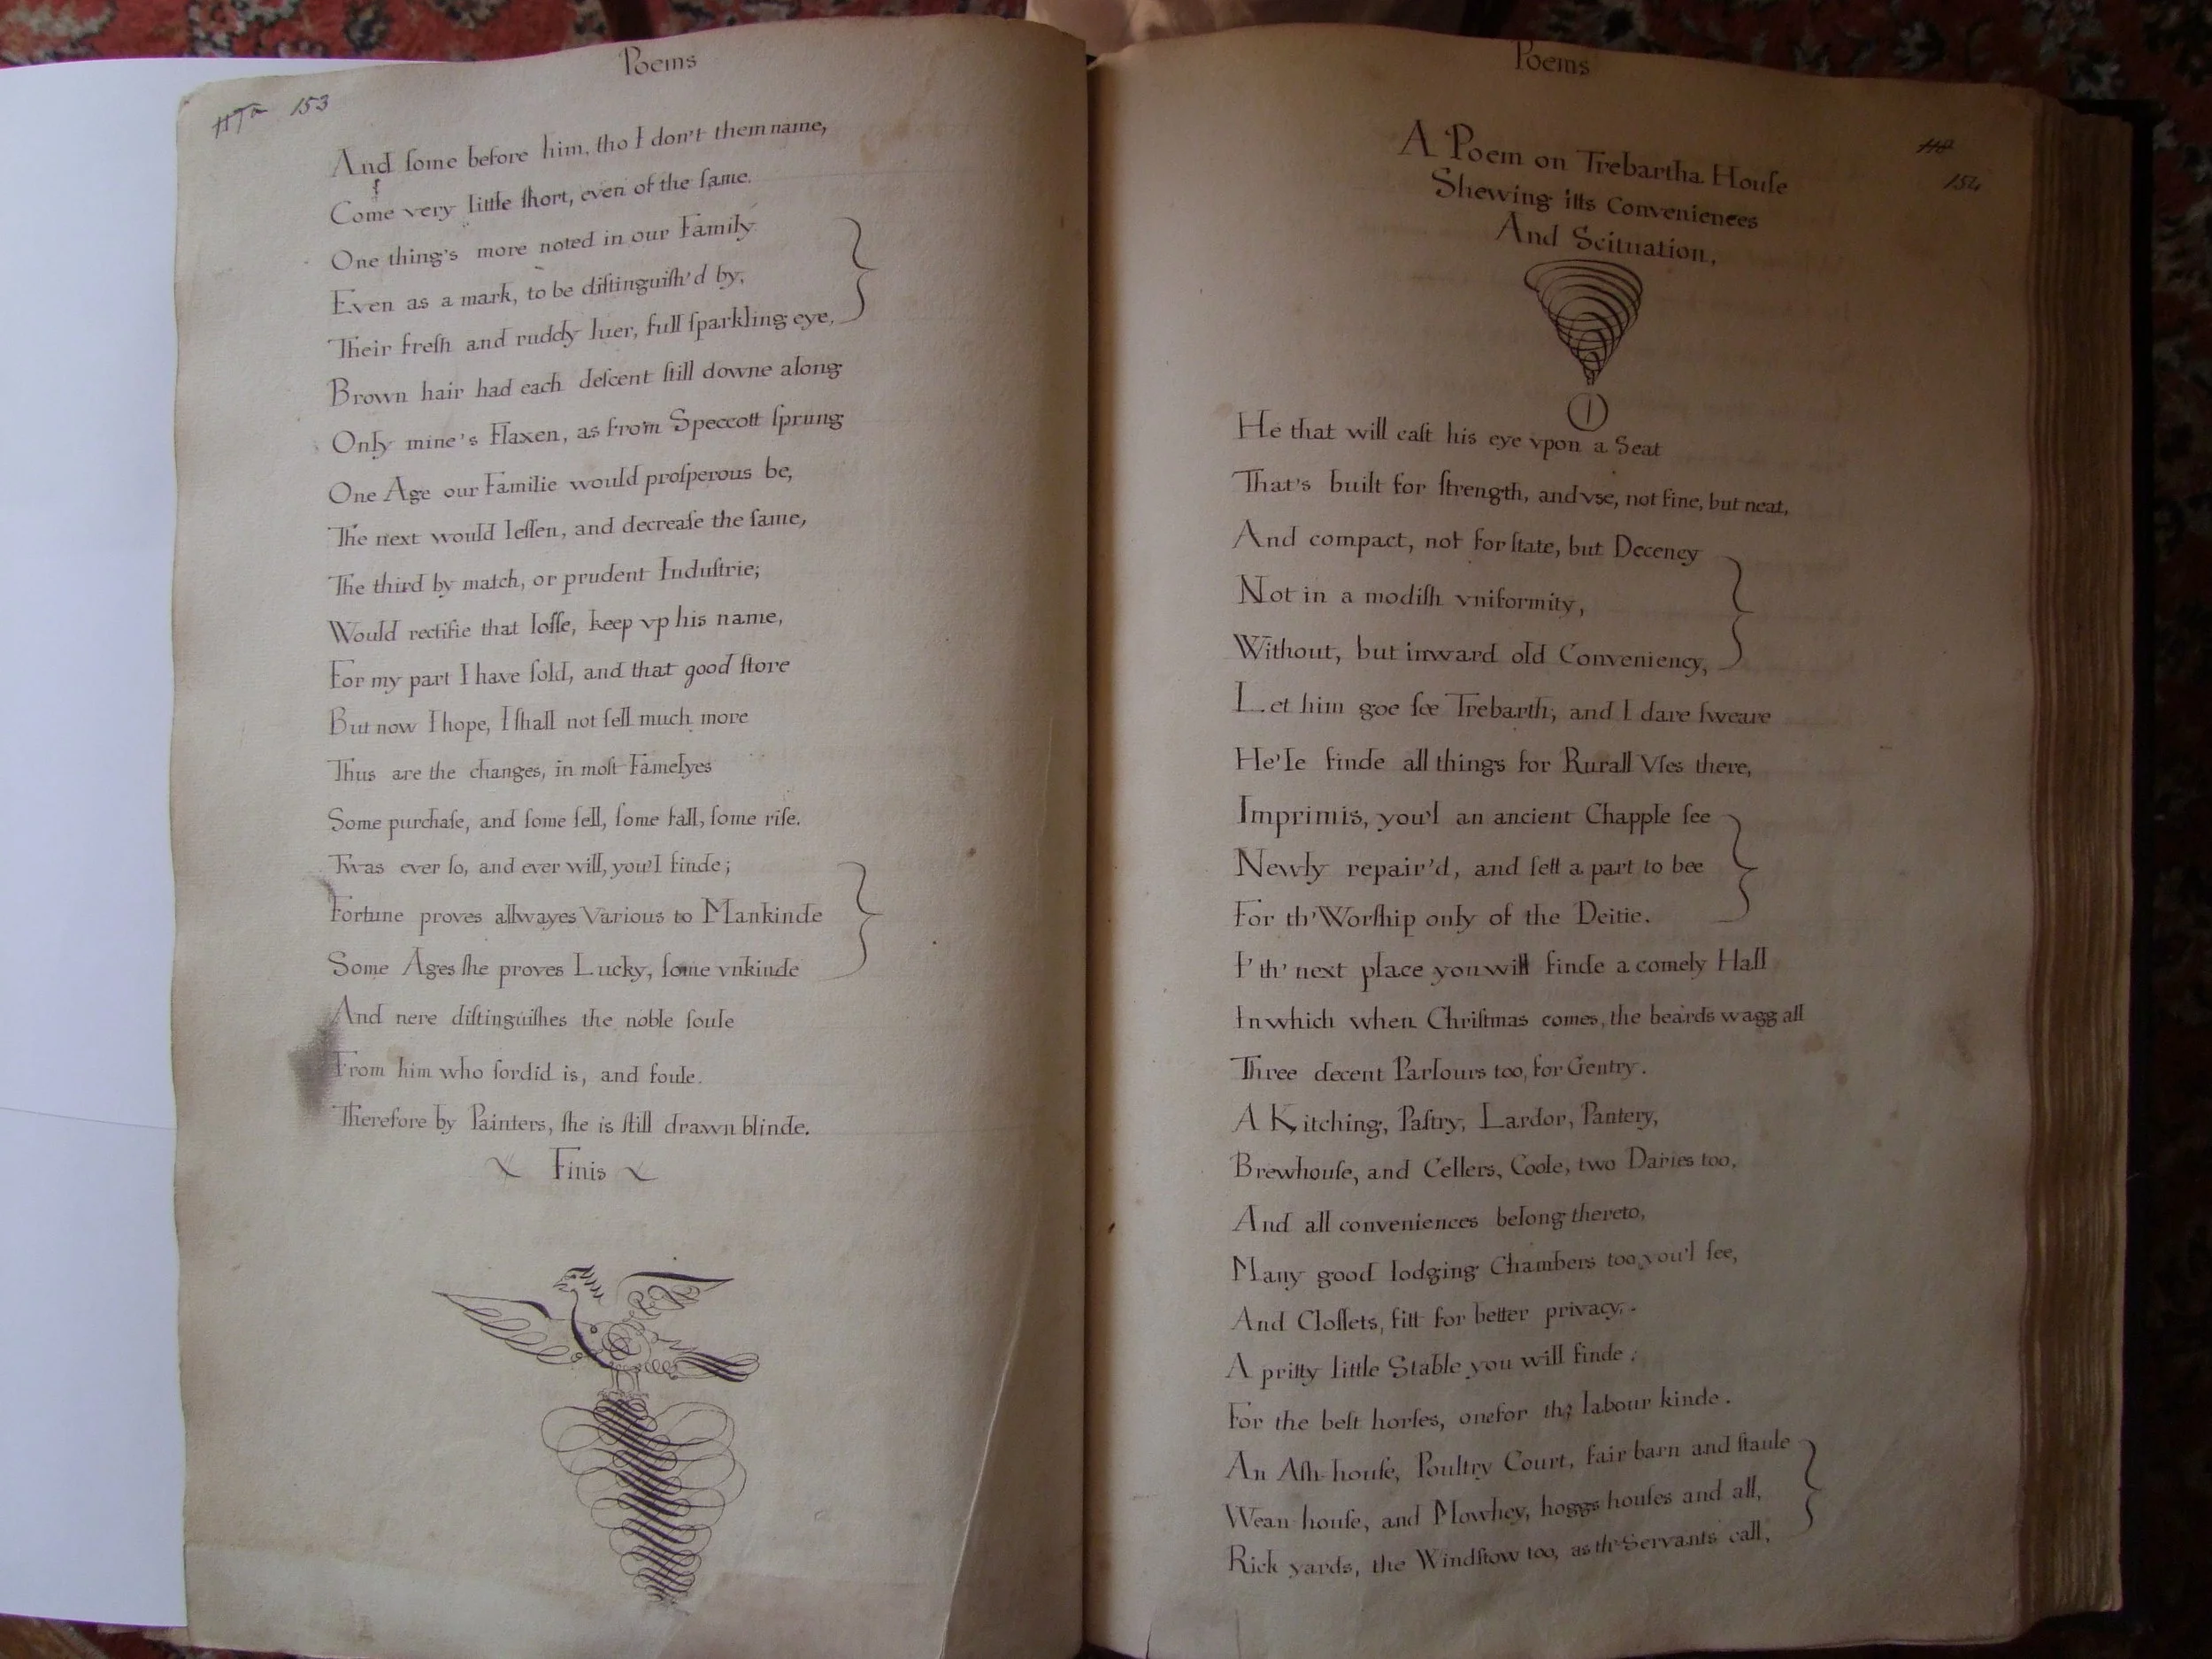 Poems
153
And ſome before him, tho I don't them name,
Come very little ſhort, even of the ſame.
One thing's more noted in our Family
Even as a mark, to be diſtinguiſh'd by,
Their freſh and ruddy luer, full ſparkling eye,
Brown hair had each deſcent ſtill downe along
Only mine's Flaxen, as from Speccott ſprung
One Age our Familie would proſperous be,
The next would leſſen, and decreaſe the ſame,
The third by match, or prudent Induſtrie;
Would rectifie that loſſe, keep vp his name,
For my part I have ſold, and that good ſtore
But now I hope, I ſhall not ſell much more
Thus are the changes, in moſt Famelyes
Some purchaſe, and ſome ſell, ſome fall, ſome riſe.
Twas ever ſo, and ever will, you'l finde;
Fortune proves allwayes Various to Mankinde
Some Ages ſhe proves Lucky, ſome vnkinde
And nere diſtinguiſhes the noble ſoule
From him who ſordid is, and foule.
Therefore by Painters, ſhe is ſtill drawn blinde.
Finis
Poems
118
154
A Poem on Trebartha Houſe
Shewing itts Conveniences
And Scituation.
1
He that will caſt his eye vpon a Seat
That's built for ſtrength, and vse, not fine, but neat,
And compact, not for ſtate, but Decency
Not in a modiſh vniformity,
Without, but inward old Conveniency,
Let him goe ſee Trebarth; and I dare ſweare
He'le finde all things for Rurall Vſes there,
Imprimis, you'l an ancient Chapple ſee
Newly repair'd, and ſett a part to bee
For th'Worſhip only of the Deitie.
I' th' next place you will finde a comely Hall
In which when Chriſtmas comes, the beards wagg all
Three decent Parlours too, for Gentry.
A Kitching, Paſtry, Lardor, Pantery,
Brewhouſe, and Cellers, Coole, two Daries too,
And all conveniences belong thereto,
Many good lodging Chambers too you'l ſee,
And Cloſſets, fitt for better privacy.
A pritty little Stable you will finde.
For the beſt horſes, one for the labour kinde.
An Aſh-houſe, Poultry Court, fair barn and ſtaule
Wean houſe, and Mowhey, hoggs houſes and all,
Rick yards, the Windſtow too, as th' Servants call,